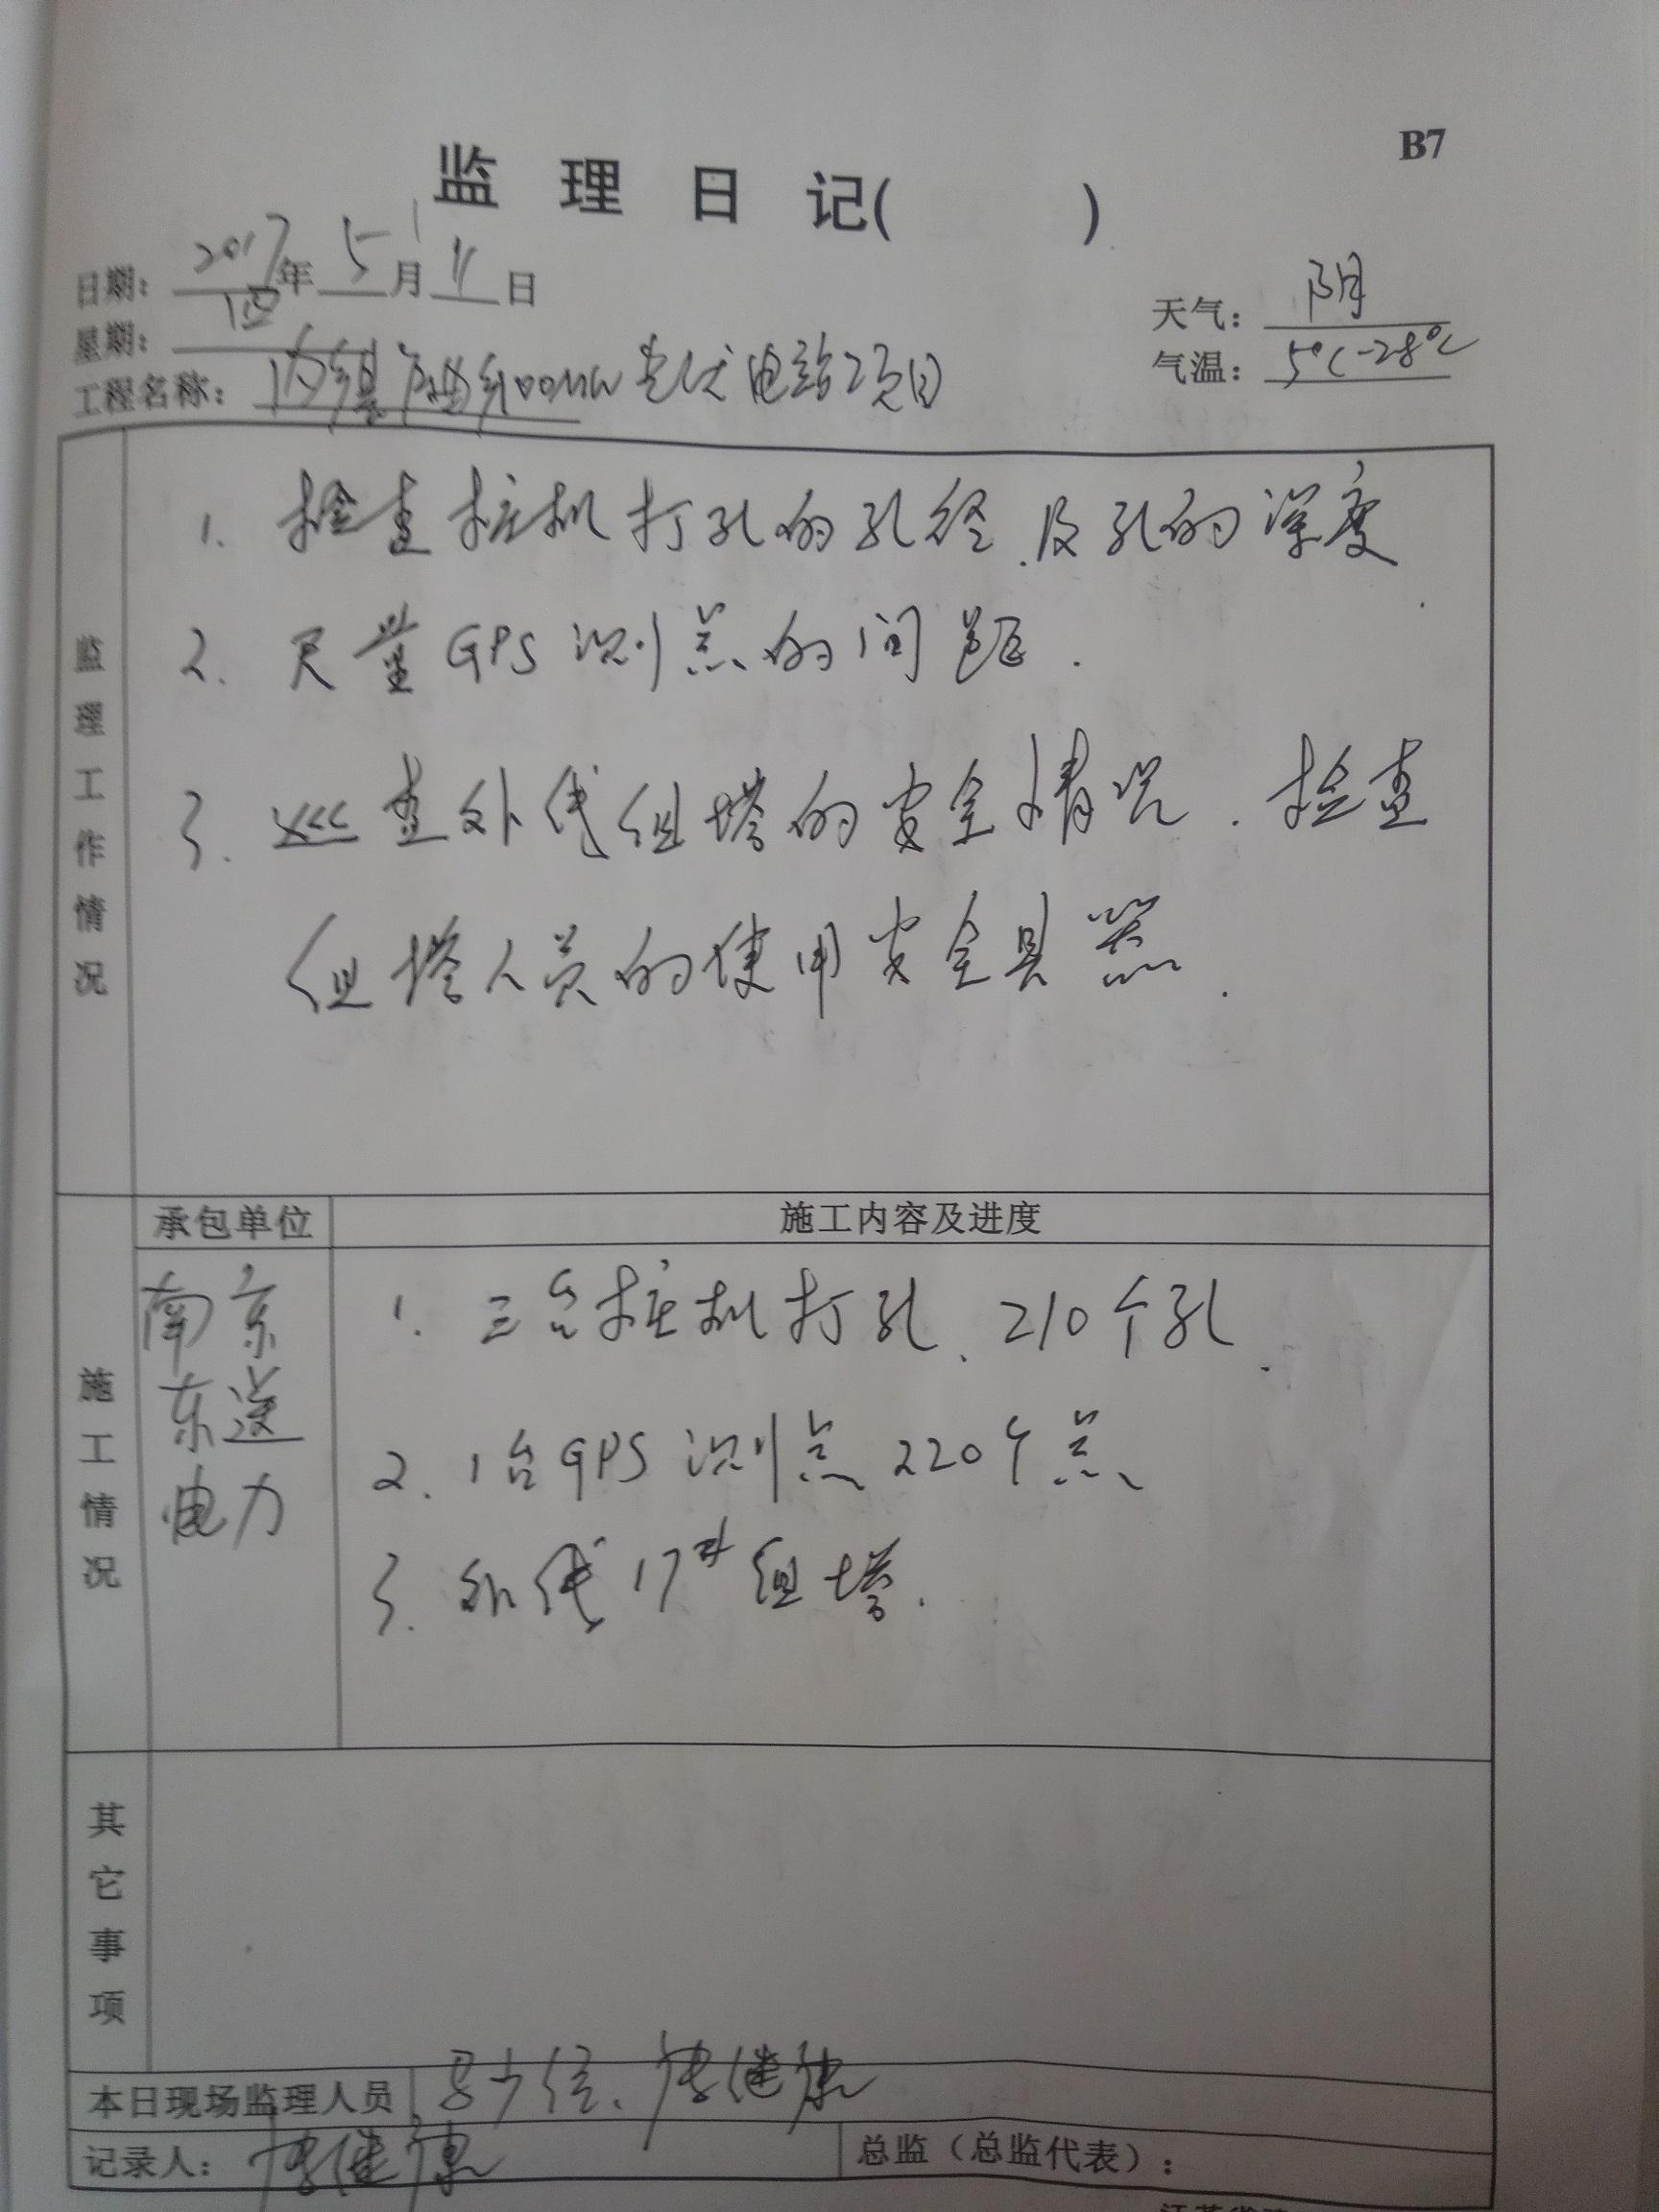 B7
监理日记( )
日期：2017年5月11日
星期：四
天气：阴
气温：5℃-28℃
工程名称：内 100MW光伏电站项目
监理工作情况
1. 检查桩机打孔的孔径.及孔的深度.
2. 尺量GPS测点的间距.
3. 巡查外线组塔的安全情况.检查
组塔人员的使用安全具器.
施工情况
承包单位
施工内容及进度
南京
东送
电力
1. 三台桩机打孔、210个孔.
2. 1台GPS测点220个点
3. 外线17#组塔.
其它事项
本日现场监理人员
记录人：
总监（总监代表）：